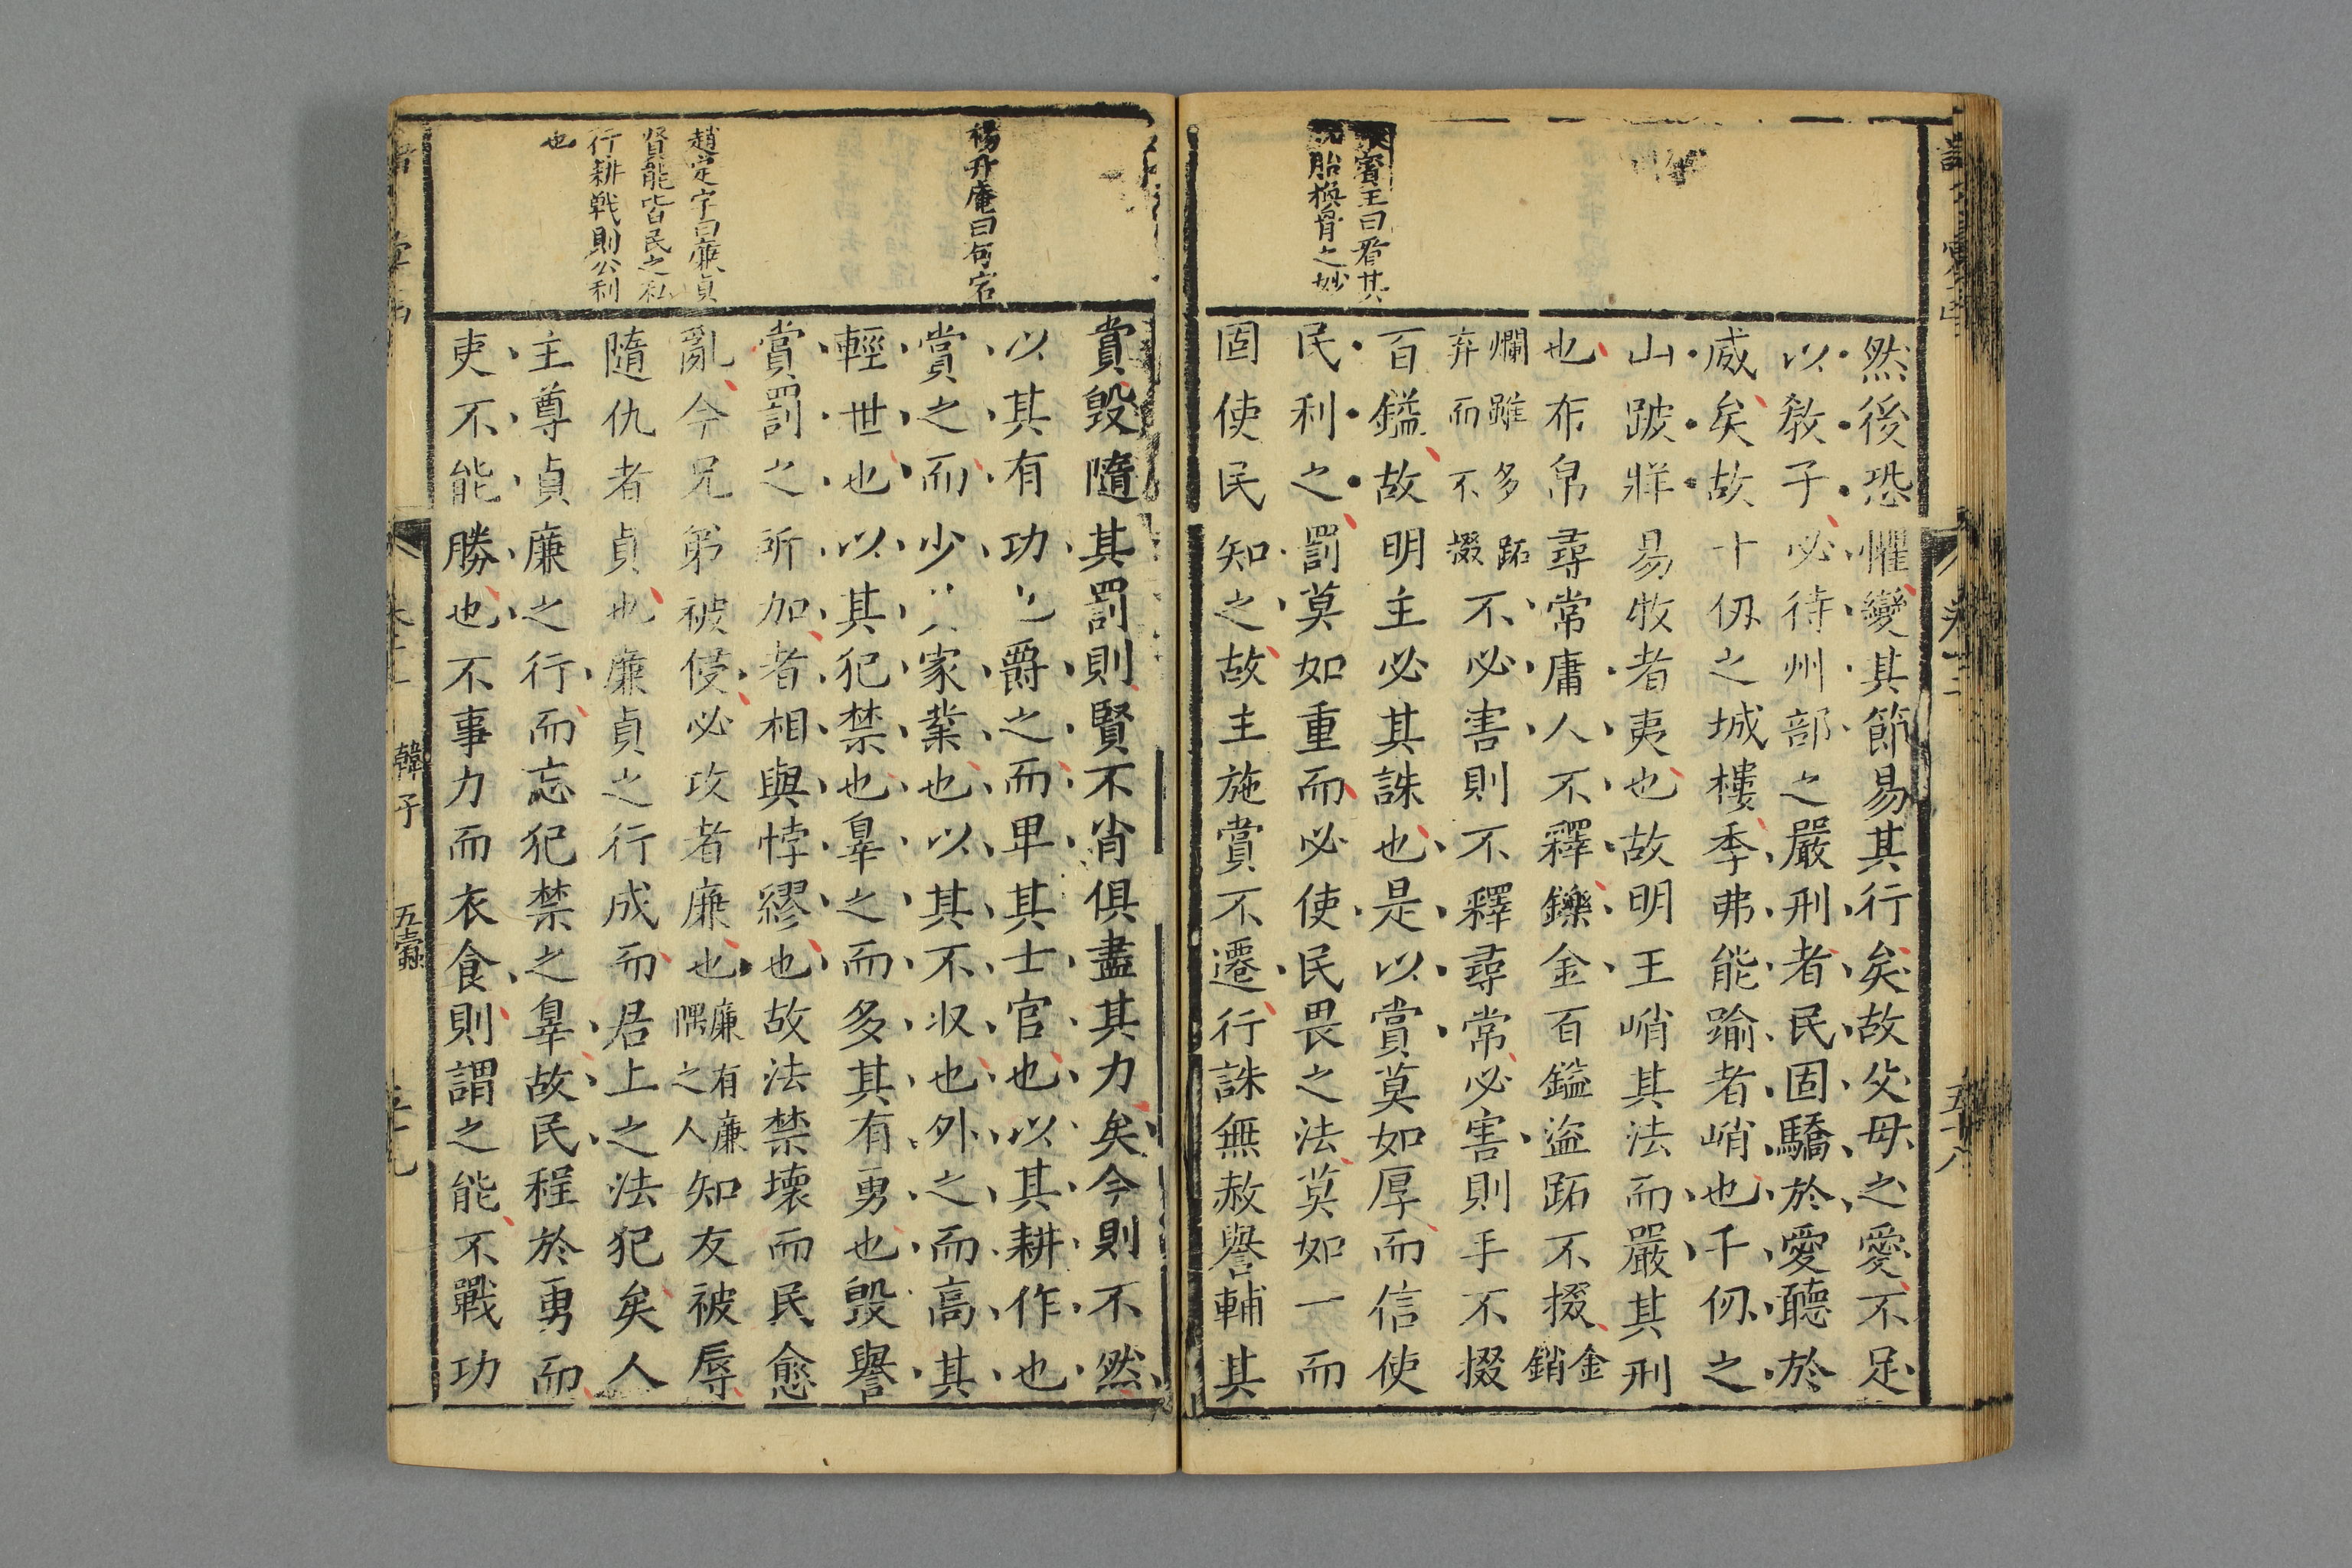 賓王曰看其
胎換骨之妙
然後恐懼變其節易其行矣故父母之愛不足
以敎子必待州部之嚴刑者民固驕於愛聽於
威矣故十仭之城樓季弗能踰者峭也千仭之
山跛牂易牧者夷也故明王峭其法而嚴其刑
也布帛尋常庸人不釋鑠金百鎰盜跖不掇金銷
爛雖多跖
弃而不掇不必害則不釋尋常必害則手不掇
百鎰故明主必其誅也是以賞莫如厚而信使
民利之罰莫如重而必使民畏之法莫如一而
固使民知之故主施賞不遷行誅無赦譽輔其
楊升庵曰句字
趙定宇曰廉貞
賢能皆民之私
行耕戰則公利
也
賞毁隨其罰則賢不肖俱盡其力矣今則不然
以其有功也爵之而卑其士官也以其耕作也
賞之而少其家業也以其不収也外之而高其
輕世也以其犯禁也辠之而多其有勇也毁譽
賞罰之所加者相與悖繆也故法禁壞而民愈
亂今兄弟被侵必攻者廉也廉有廉隅之人知友被辱
隨仇者貞也廉貞之行成而君上之法犯矣人
主尊貞廉之行而忘犯禁之辠故民程於勇而
吏不能勝也不事力而衣食則謂之能不戰功
韓子
五蠹